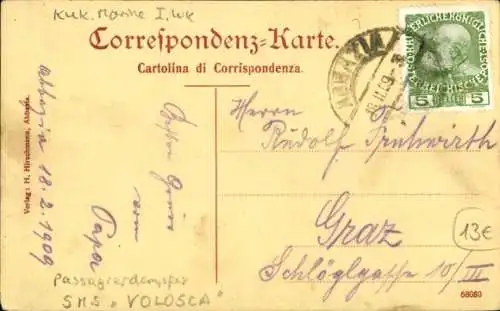 KuK. Marine I. WK
Correspondenz-Karte.
Cartolina di Corrispondenza.
KAISERLICHE KÖNIGLICHE ÖSTERREICHISCHE
5 5
ABBAZIA
18.II.09
Verlag: H. Hirschmann, Abbazia.
Abbazia 18.2.1909
Besten Gruss
vom
Papa
Passagierdampfer
SMS „VOLOSCA"
Herrn
Rudolf Fruhwirth
Graz
13€
Schlöglgasse 10/III
68080